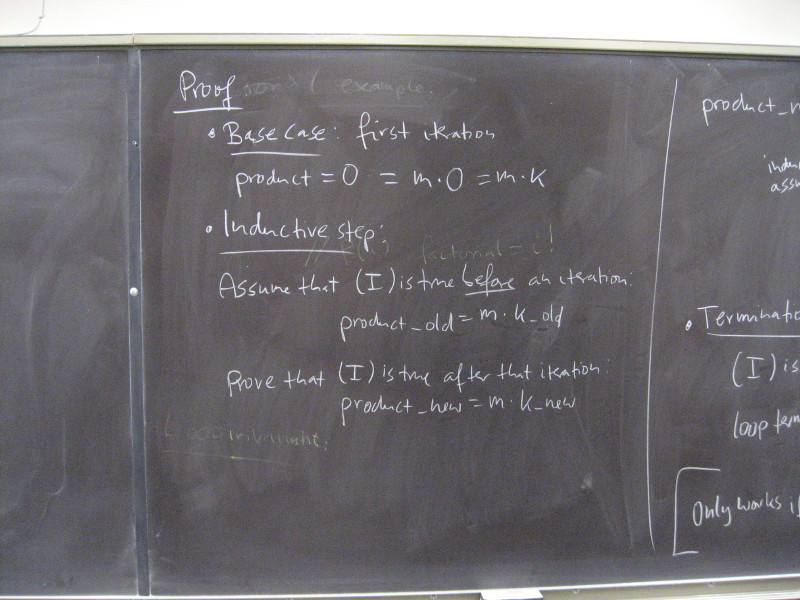 Proof
example.
• Base case: first iteration
product = 0 = m·0 = m·k
• Inductive step:
factorial = i!
Assume that (I) is true before an iteration:
product_old = m·k_old
Prove that (I) is true after that iteration:
product_new = m·k_new
Loop invariant:
product_n
• Terminatio
(I) is
loop term
Only works if